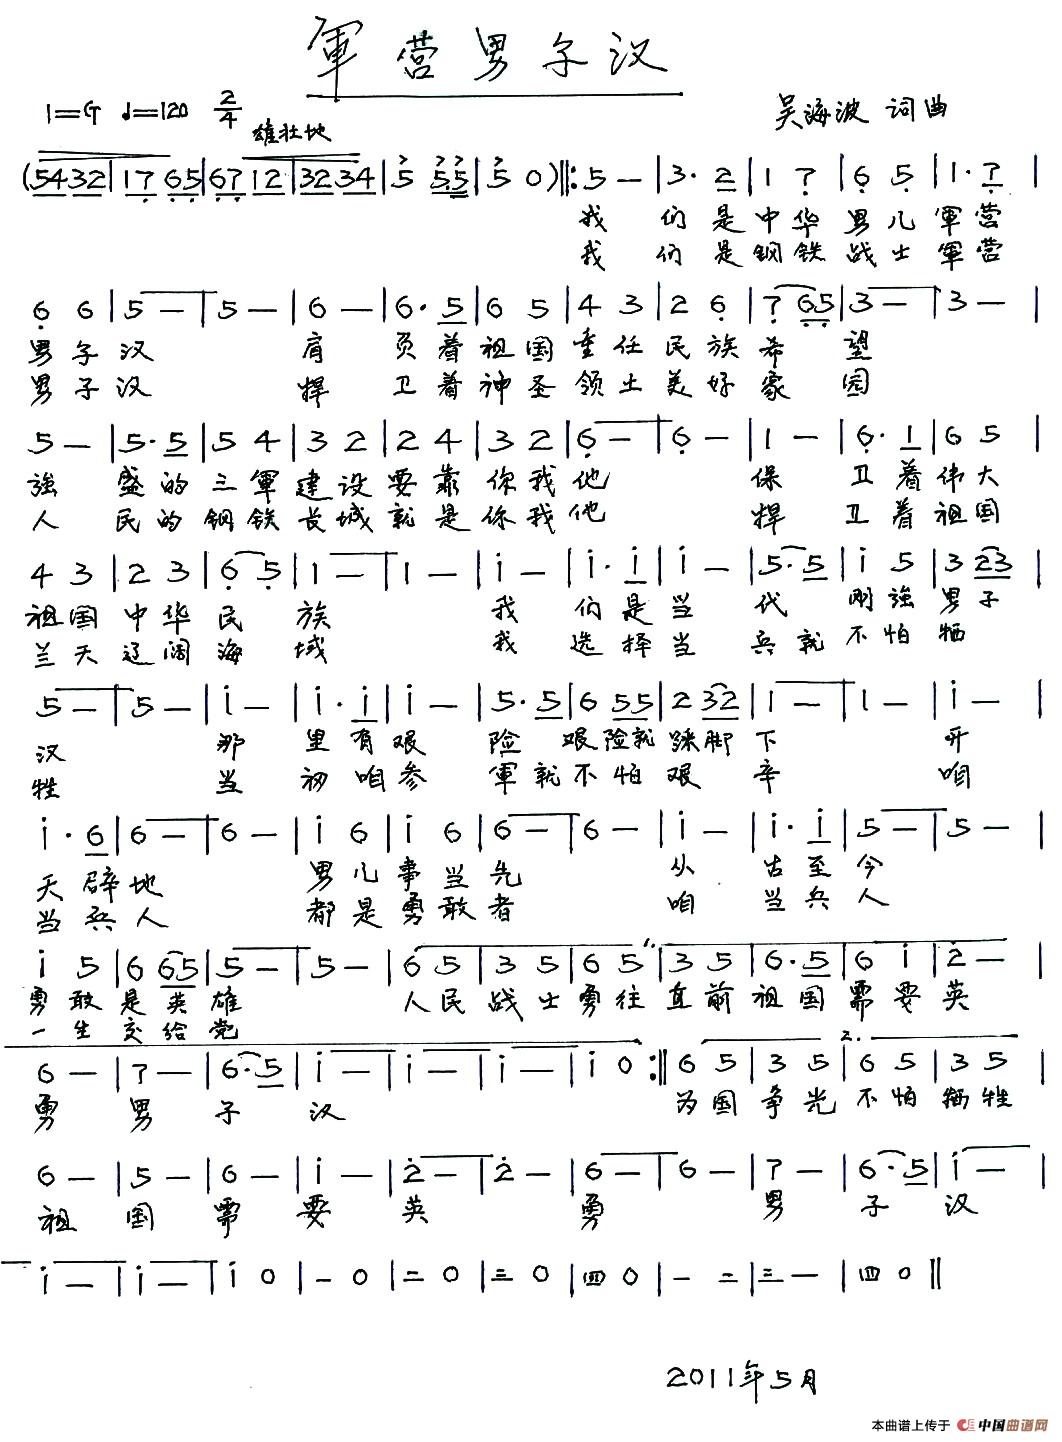 軍营男子汉
1=G ♩=120 2/4
雄壮地
吴海波 词曲
(5432|17 65|67 12|32 34|5 5 5 5|5 0)‖:5 —|3· 2|1 7|6 5|1· 7|
我 们 是 中 华 男 儿 軍 营
我 们 是 钢 铁 战 士 軍 营
6 6|5 —|5 —|6 —|6· 5|6 5|4 3|2 6|7 65|3 —|3 —|
男 子 汉 肩 负 着 祖 国 重 任 民 族 希 望
男 子 汉 捍 卫 着 神 圣 领 土 美 好 家 园
5 —|5· 5|5 4|3 2|2 4|3 2|6 —|6 —|1 —|6· 1|6 5|
強 盛 的 三 軍 建 设 要 靠 你 我 他 保 卫 着 伟 大
人 民 的 钢 铁 长 城 就 是 你 我 他 捍 卫 着 祖 国
4 3|2 3|6 5|1 —|1 —|i —|i· i|i —|5· 5|i 5|3 23|
祖 国 中 华 民 族 我 们 是 当 代 刚 強 男 子
兰 天 辽 阔 海 域 我 选 择 当 兵 就 不 怕 牺
5 —|5 —|i —|i· i|i —|5· 5|6 55|2 32|1 —|1 —|i —|
汉 那 里 有 艰 险 艰 险 就 踩 脚 下 开
牲 当 初 咱 参 軍 就 不 怕 艰 辛 咱
i· 6|6 —|6 —|i 6|i 6|6 —|6 —|i —|i· i|5 —|5 —|
天 辟 地 男 儿 事 当 先 从 古 至 今
当 兵 人 都 是 勇 敢 者 咱 当 兵 人
i 5|6 65|5 —|5 —|6 5|3 5|6 5|3 5|6· 5|6 i|2 —|
1.
勇 敢 是 英 雄 人 民 战 士 勇 往 直 前 祖 国 需 要 英
一 生 交 给 党
6 —|7 —|6· 5|i —|i —|i —|i 0:‖6 5|3 5|6 5|3 5|
2.
勇 男 子 汉 为 国 争 光 不 怕 牺 牲
6 —|5 —|6 —|i —|2 —|2 —|6 —|6 —|7 —|6· 5|i —|
祖 国 需 要 英 勇 男 子 汉
i —|i —|i 0|一 0|二 0|三 0|四 0|一 二|三 —|四 0‖
2011年5月
本曲谱上传于 中国曲谱网